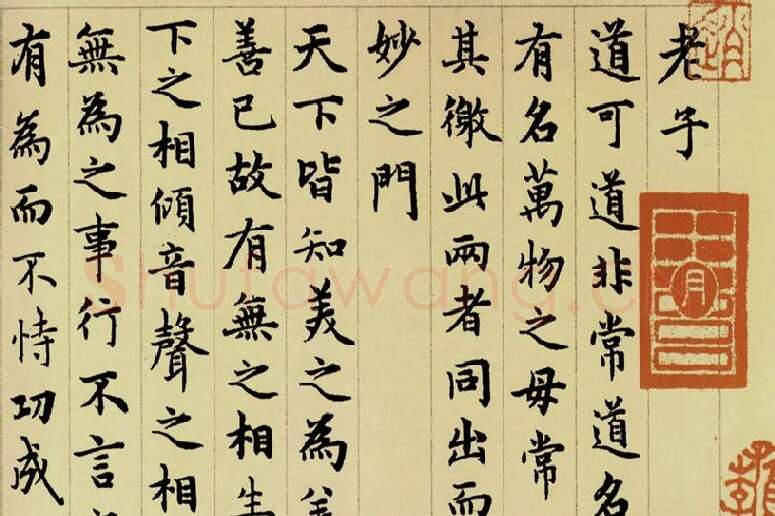 老子
道可道非常道名
有名萬物之母常
其徼此兩者同出而
妙之門
天下皆知美之為
善已故有無之相生
下之相傾音聲之相
無為之事行不言
有為而不恃功成
shufawang.c